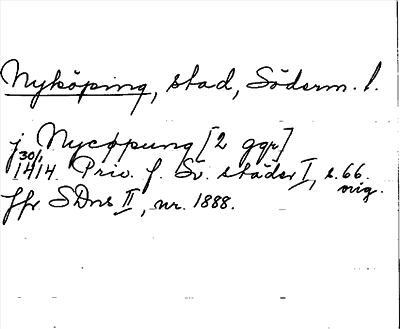 Nyköping, stad, Söderm. l.
j Nycopung [2 ggr]
30/1 1414. Priv. f. Sv. städer I, s. 66. orig.
Jfr SDns II, nr. 1888.